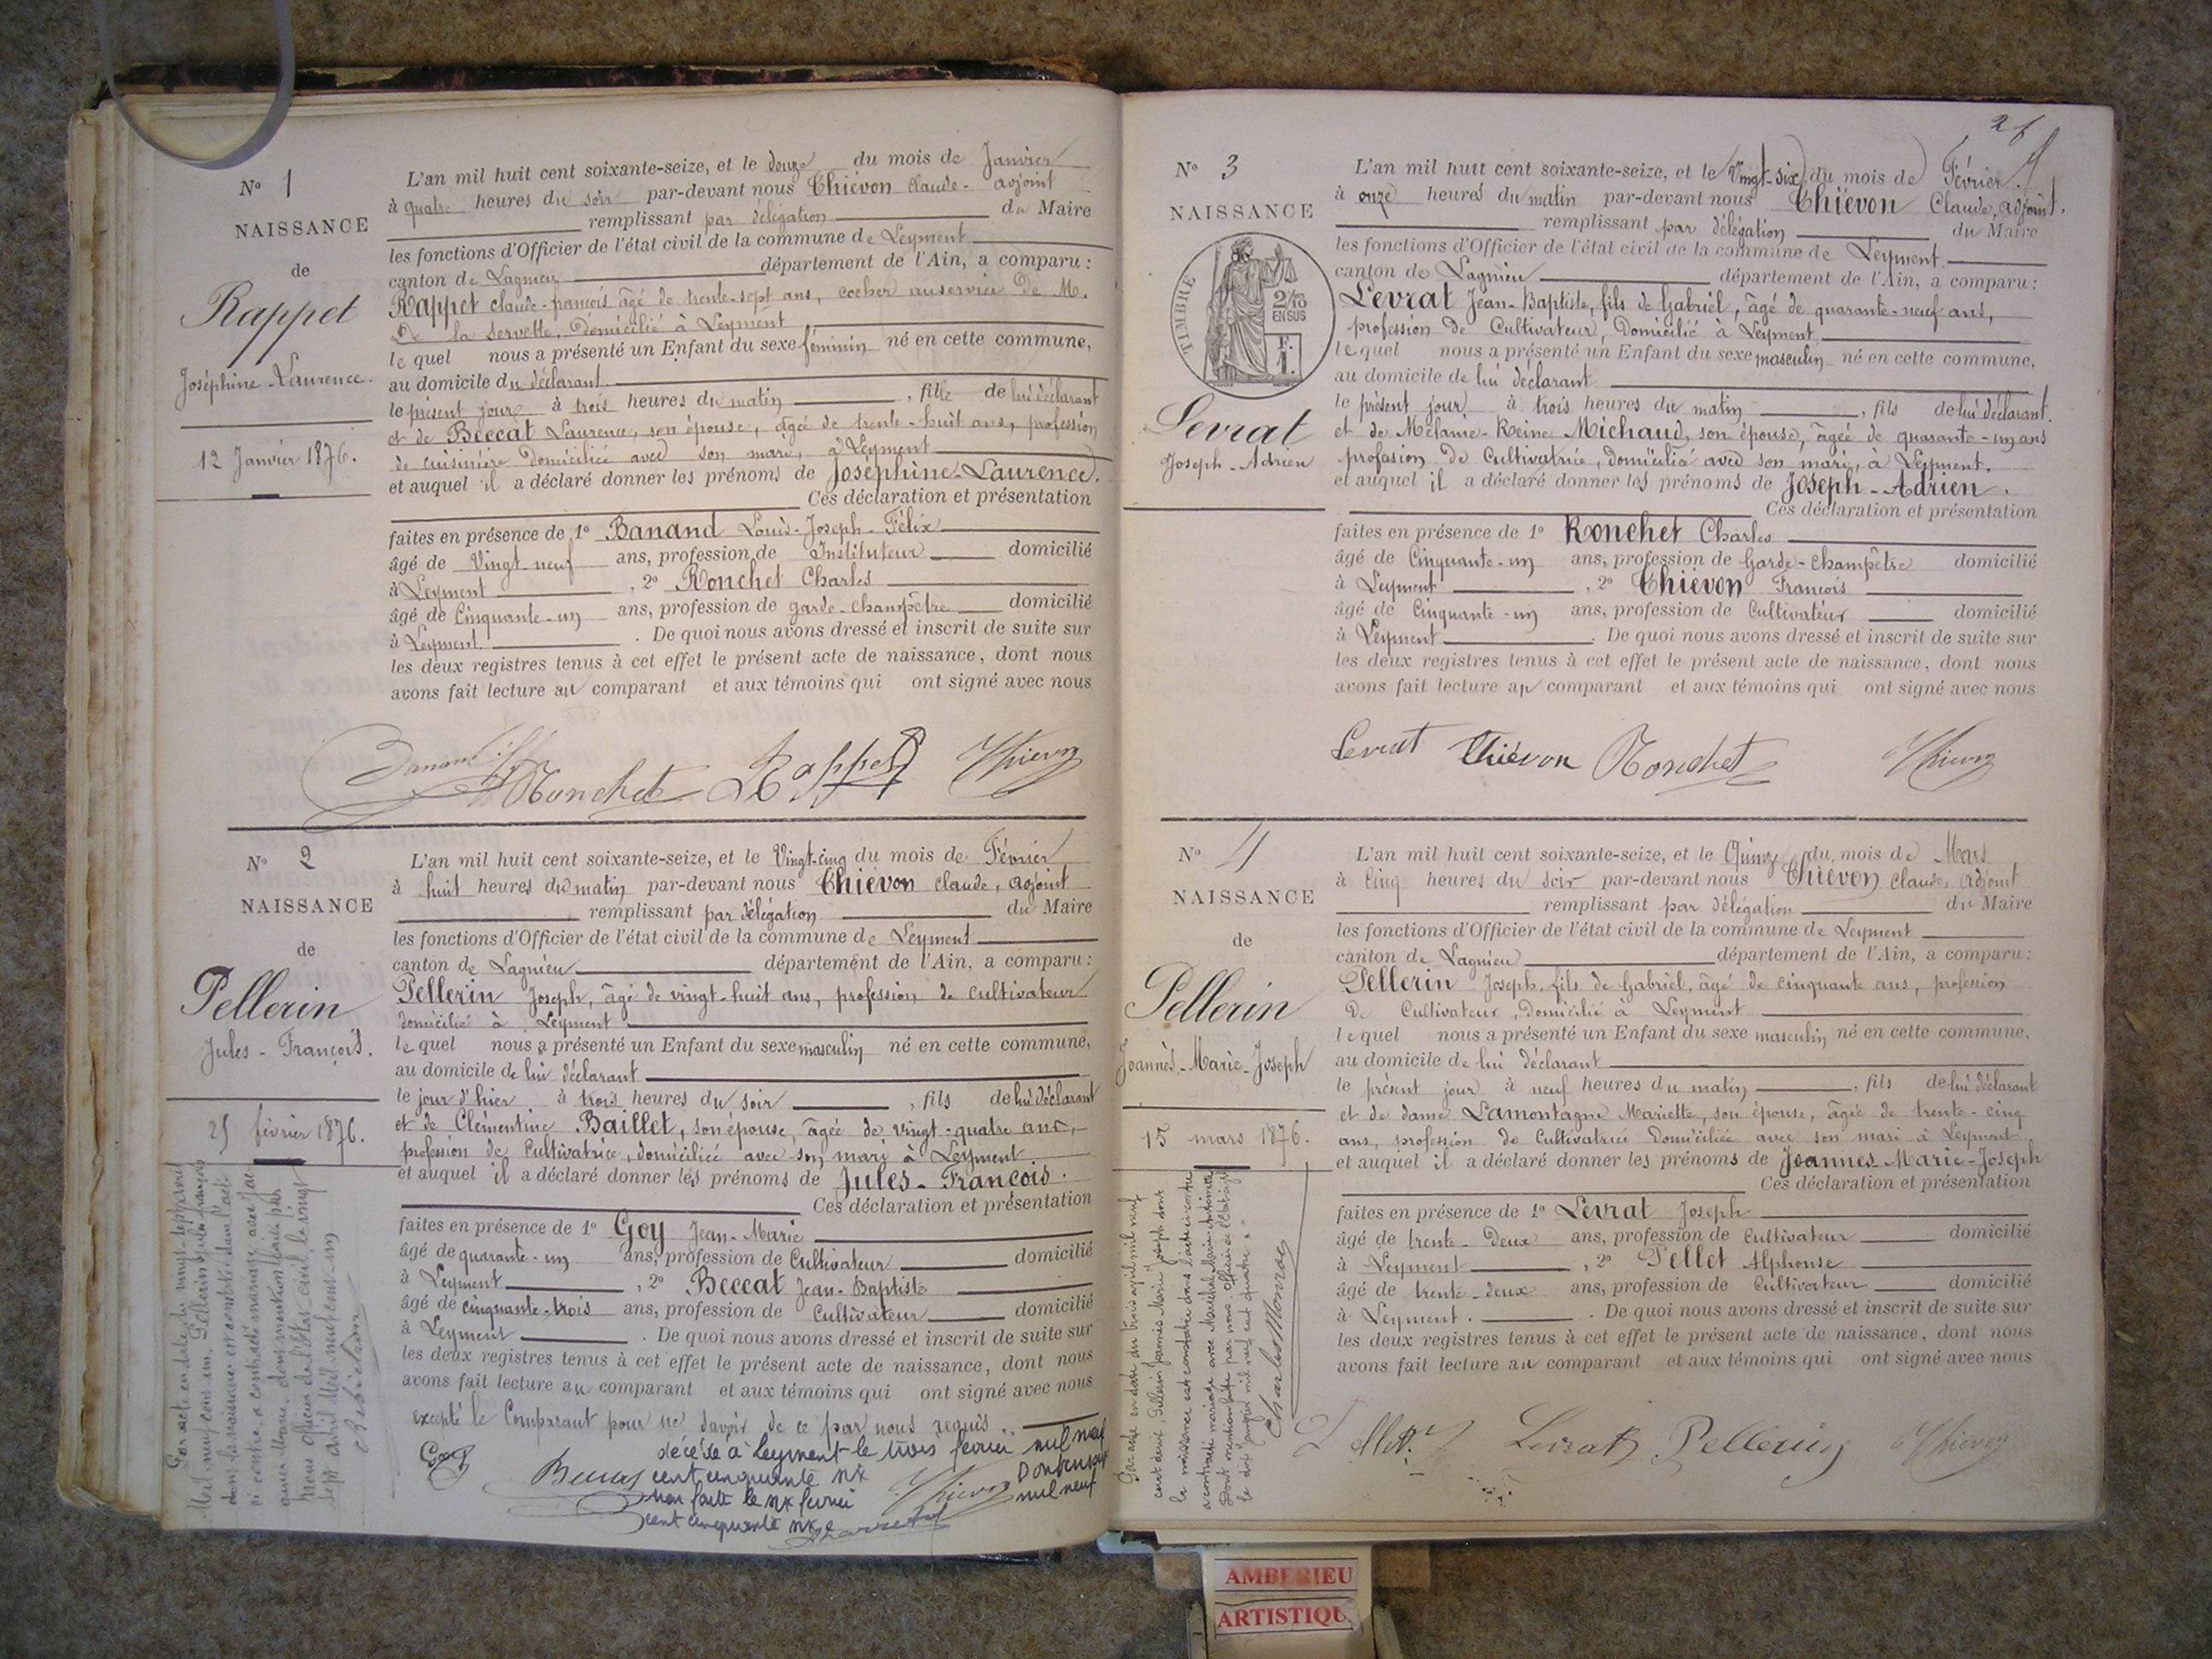 Nº 1
NAISSANCE
de
Rappet
Joséphine-Laurence.
12 Janvier 1876.
L'an mil huit cent soixante-seize, et le douze du mois de Janvier
à quatre heures du soir par-devant nous Thiévon Claude. adjoint
remplissant par délégation du Maire
les fonctions d'Officier de l'état civil de la commune de Leyment
canton de Lagnieu département de l'Ain, a comparu :
Rappet Claude-francois âgé de trente-sept ans, cocher au service de M.
De la Servette, domicilié à Leyment
le quel nous a présenté un Enfant du sexe féminin né en cette commune,
au domicile du déclarant
le présent jour à trois heures du matin , fille de lui déclarant
et de Beccat Laurence, son épouse, âgée de trente-huit ans, profession
de cuisinière domiciliée avec son mari, à Leyment
et auquel il a déclaré donner les prénoms de Joséphine-Laurence.
Ces déclaration et présentation
faites en présence de 1º Banand Louis-Joseph-Félix
âgé de Vingt-neuf ans, profession de Instituteur domicilié
à Leyment , 2º Ronchet Charles
âgé de Cinquante-un ans, profession de garde-champêtre domicilié
à Leyment. . De quoi nous avons dressé et inscrit de suite sur
les deux registres tenus à cet effet le présent acte de naissance, dont nous
avons fait lecture au comparant et aux témoins qui ont signé avec nous
Banand Ronchet Rappet Thiévon
Nº 2
NAISSANCE
de
Pellerin
Jules-François.
25 février 1876.
L'an mil huit cent soixante-seize, et le Vingt-cinq du mois de Février
à huit heures du matin par-devant nous Thiévon Claude, adjoint
remplissant par délégation du Maire
les fonctions d'Officier de l'état civil de la commune de Leyment
canton de Lagnieu département de l'Ain, a comparu :
Pellerin Joseph, âgé de vingt-huit ans, profession de cultivateur
domicilié à Leyment
le quel nous a présenté un Enfant du sexe masculin né en cette commune,
au domicile de lui déclarant
le jour d'hier à trois heures du soir , fils de lui déclarant
et de Clémentine Baillet, son épouse, âgée de vingt-quatre ans,
profession de Cultivatrice, domiciliée avec son mary à Leyment
et auquel il a déclaré donner les prénoms de Jules-François.
Ces déclaration et présentation
faites en présence de 1º Goy Jean-Marie
âgé de quarante-un ans, profession de Cultivateur domicilié
à Leyment , 2º Beccat Jean-Baptiste
âgé de cinquante-trois ans, profession de Cultivateur domicilié
à Leyment . De quoi nous avons dressé et inscrit de suite sur
les deux registres tenus à cet effet le présent acte de naissance, dont nous
avons fait lecture au comparant et aux témoins qui ont signé avec nous
excepté le Comparant pour ne savoir de ce par nous requis..
Goy Beccat Thiévon
décédé à Leyment le trois février mil neuf
cent cinquante six Dont mention
faite le six février mil neuf
cent cinquante six
Par acte en date du vingt-sept avril
Mil neuf cent un, Pellerin Jules François
dont la naissance est constatée dans l'acte
ci contre a contracté mariage avec
dont mention faite par
Nous officier de l'état civil, le vingt
sept avril Mil neuf cent un
Nº 3
NAISSANCE
TIMBRE
2/10
EN SUS
Levrat
Joseph-Adrien
L'an mil huit cent soixante-seize, et le Vingt-six du mois de Février
à onze heures du matin par-devant nous Thiévon Claude, adjoint.
remplissant par délégation du Maire
les fonctions d'Officier de l'état civil de la commune de Leyment.
canton de Lagnieu département de l'Ain, a comparu :
Levrat Jean-Baptiste, fils de Gabriel, âgé de quarante-neuf ans,
profession de Cultivateur, Domicilié à Leyment
le quel nous a présenté un Enfant du sexe masculin né en cette commune,
au domicile de lui déclarant
le présent jour à trois heures du matin , fils de lui déclarant.
et de Mélanie-Reine Michaud, son épouse, âgée de quarante-un ans
profession de Cultivatrice, domiciliée avec son mari, à Leyment.
et auquel il a déclaré donner les prénoms de Joseph-Adrien.
Ces déclaration et présentation
faites en présence de 1º Ronchet Charles
âgé de Cinquante-un ans, profession de Garde-Champêtre domicilié
à Leyment , 2º Thiévon Francois
âgé de Cinquante-un ans, profession de Cultivateur domicilié
à Leyment . De quoi nous avons dressé et inscrit de suite sur
les deux registres tenus à cet effet le présent acte de naissance, dont nous
avons fait lecture au comparant et aux témoins qui ont signé avec nous
Levrat Thiévon Ronchet Thiévon
Nº 4
NAISSANCE
de
Pellerin
Joannès-Marie-Joseph
15 mars 1876.
L'an mil huit cent soixante-seize, et le Quinze du mois de Mars
à Cinq heures du soir par-devant nous Thiévon Claude, adjoint
remplissant par délégation du Maire
les fonctions d'Officier de l'état civil de la commune de Leyment
canton de Lagnieu département de l'Ain, a comparu :
Pellerin Joseph, fils de Gabriel, âgé de cinquante ans, profession
De Cultivateur, Domicilié à Leyment
le quel nous a présenté un Enfant du sexe masculin né en cette commune,
au domicile de lui déclarant
le présent jour à neuf heures du matin , fils de lui déclarant
et de dame Lamontagne Mariette, son épouse, âgée de trente-cinq
ans, profession de Cultivatrice domiciliée avec son mari à Leyment
et auquel il a déclaré donner les prénoms de Joannès-Marie-Joseph
Ces déclaration et présentation
faites en présence de 1º Levrat Joseph
âgé de trente-deux ans, profession de Cultivateur domicilié
à Leyment , 2º Pellet Alphonse
âgé de trente-deux ans, profession de Cultivateur domicilié
à Leyment. . De quoi nous avons dressé et inscrit de suite sur
les deux registres tenus à cet effet le présent acte de naissance, dont nous
avons fait lecture au comparant et aux témoins qui ont signé avec nous
Pellet Levrat Pellerin Thiévon
Par acte en date du trois avril mil neuf
cent deux, Pellerin Joannès Marie Joseph dont
la naissance est constatée dans l'acte ci-contre
a contracté mariage avec Marie Antoinette
Dont mention faite par nous officier de l'état civil
le dix janvier mil neuf cent quatre.
AMBERIEU
ARTISTIQU